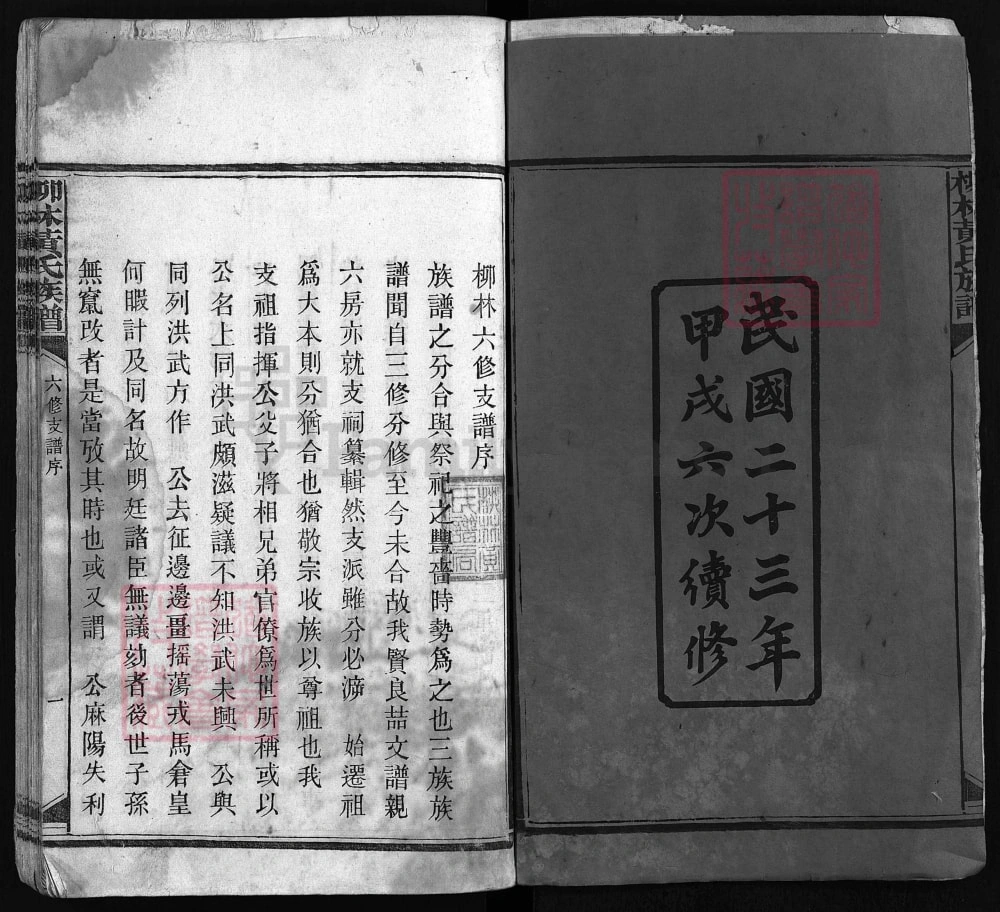 民國二十三年
甲戌六次續修
柳林黃氏族譜
柳林六修支譜序
族譜之分合與祭祀之豐嗇時勢爲之也三族族
譜聞自三修分修至今未合故我賢良喆文譜親
六房亦就支祠纂輯然支派雖分必游 始遷祖
爲大本則分猶合也猶敬宗收族以尊祖也我
支祖指揮公父子將相兄弟官僚爲世所稱或以
公名上同洪武頗滋疑議不知洪武未興 公與
同列洪武方作 公去征邊邊畺搖蕩戎馬倉皇
何暇計及同名故明廷諸臣無議劾者後世子孫
無竄改者是當攷其時也或又謂 公麻陽失利
柳林黃氏族譜
六修支譜序
一